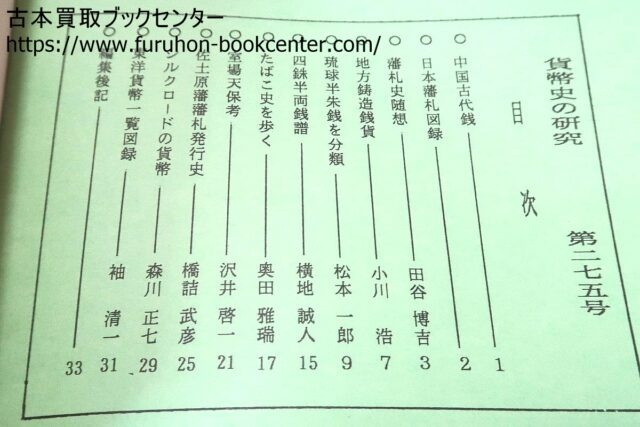 古本買取ブックセンター
https://www.furuhon-bookcenter.com/
貨幣史の研究 第二七五号
目次
○ 中国古代銭 1
○ 日本藩札図録 2
○ 藩札史随想 田谷 博吉 3
○ 地方鋳造銭貨 小川 浩 7
○ 琉球半朱銭を分類 松本 一郎 9
○ 四銖半両銭譜 横地 誠人 15
○ たばこ史を歩く 奥田 雅瑞 17
○ 室場天保考 沢井 啓一 21
○ 佐土原藩藩札発行史 橋詰 武彦 25
○ シルクロードの貨幣 森川 正七 29
○ 東洋貨幣一覧図録 袖 清一 31
○ 編集後記 33